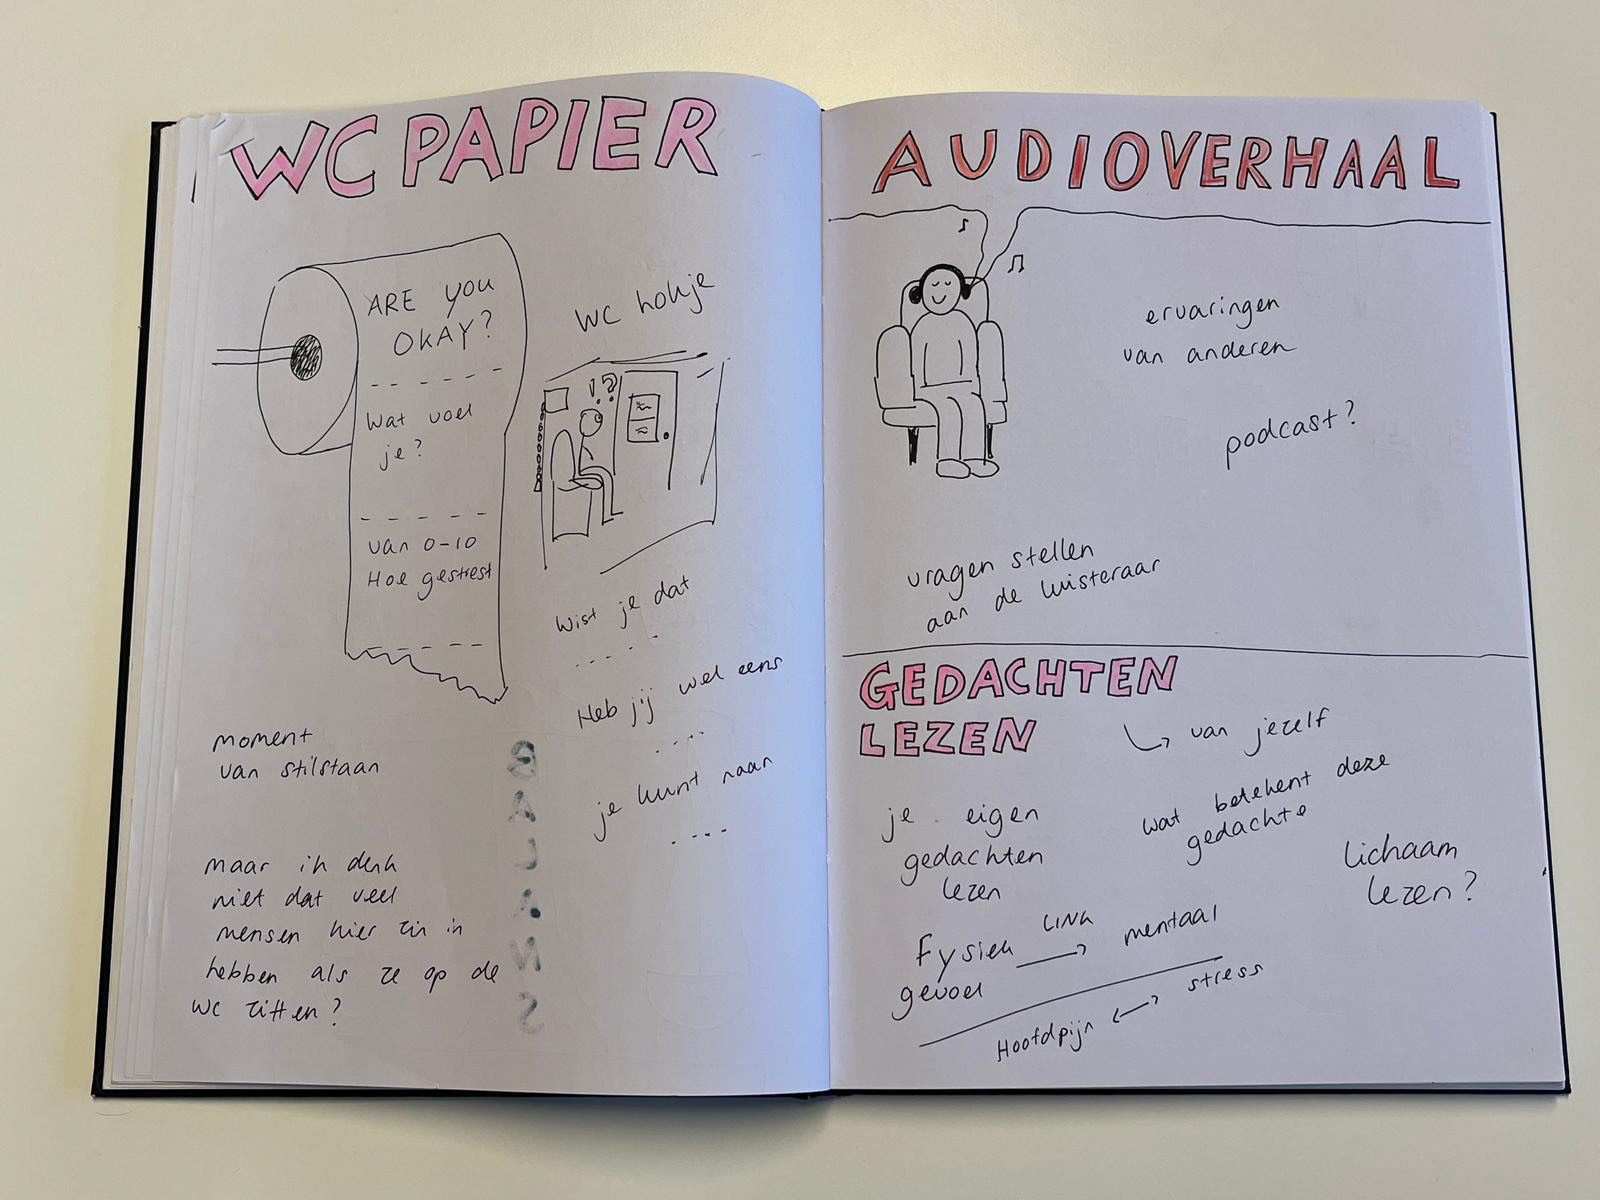 WC PAPIER
ARE YOU
OKAY?
Wat voel
je?
van 0-10
Hoe gestrest
WC hokje
!?
Wist je dat
.....
Heb jij wel eens
....
je kunt naar
....
moment
van stilstaan
maar ik denk
niet dat veel
mensen hier zin in
hebben als ze op de
WC zitten?
BALANS
AUDIOVERHAAL
ervaringen
van anderen
podcast?
vragen stellen
aan de luisteraar
GEDACHTEN
LEZEN
van jezelf
je eigen
gedachten
lezen
wat betekent deze
gedachte
lichaam
lezen?
Fysiek LINK → mentaal
gevoel
Hoofdpijn ↔ stress